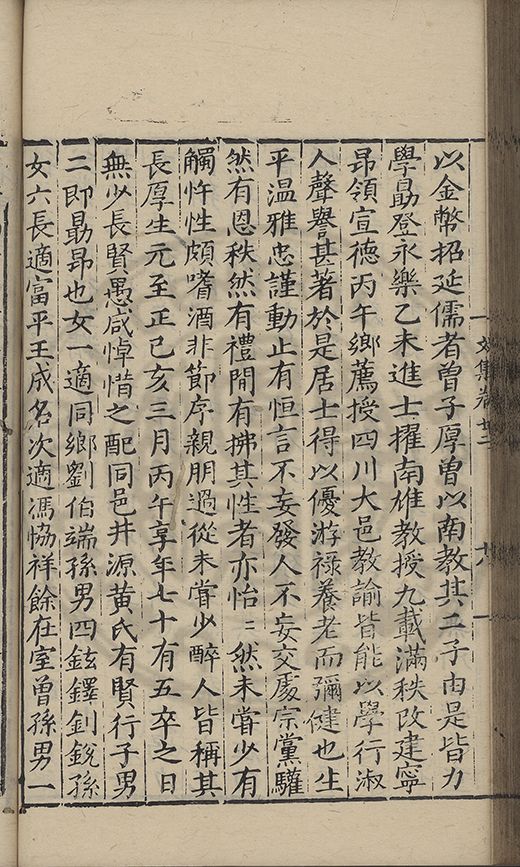 以金幣招延儒者曾子厚曾以南教其二子由是皆力
學勗登永樂乙未進士擢南雄教授九載滿秩改建寧
昂領宣德丙午鄉薦授四川大邑教諭皆能以學行淑
人聲譽甚著於是居士得以優游禄養老而彌健也生
平温雅忠謹動止有恒言不妄發人不妄交處宗黨驩
然有恩秩然有禮間有拂其性者亦怡〻然未嘗少有
觸忤性頗嗜酒非節序親朋過從未嘗少醉人皆稱其
長厚生元至正己亥三月丙午享年七十有五卒之日
無少長賢愚咸悼惜之配同邑井源黄氏有賢行子男
二即勗昂也女一適同鄉劉伯端孫男四鉉鐸釗鋭孫
女六長適富平王成名次適馮恊祥餘在室曾孫男一